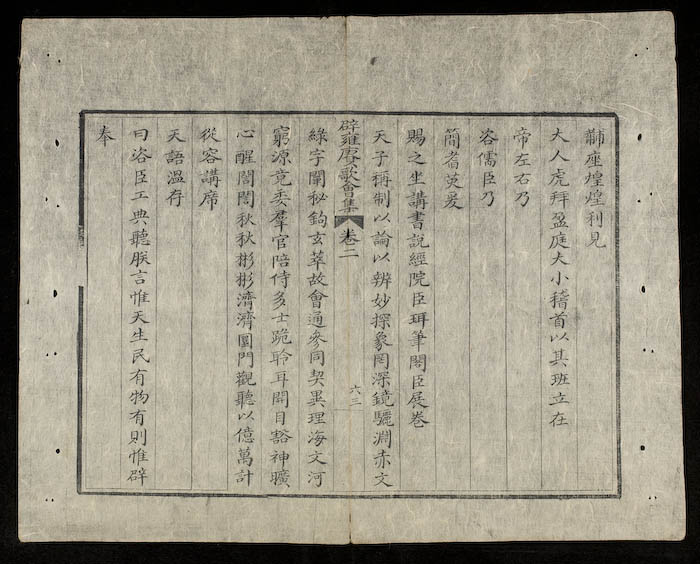 黼座煌煌利見
大人虎拜盈庭大小稽首以其班立在
帝左右乃
咨儒臣乃
簡耆英爰
賜之坐講書說經院臣珥筆閣臣展卷
天子稱制以論以辨妙探象罔深鏡驪淵赤文
辟雍賡歌會集 卷二 六三
綠字闡秘鉤玄萃故會通參同契異理海文河
窮源竟委羣官陪侍多士跪聆耳開目豁神曠
心醒誾誾秩秩彬彬濟濟圜門觀聽以億萬計
從容講席
天語溫存
曰咨臣工典聽朕言惟天生民有物有則惟辟
奉